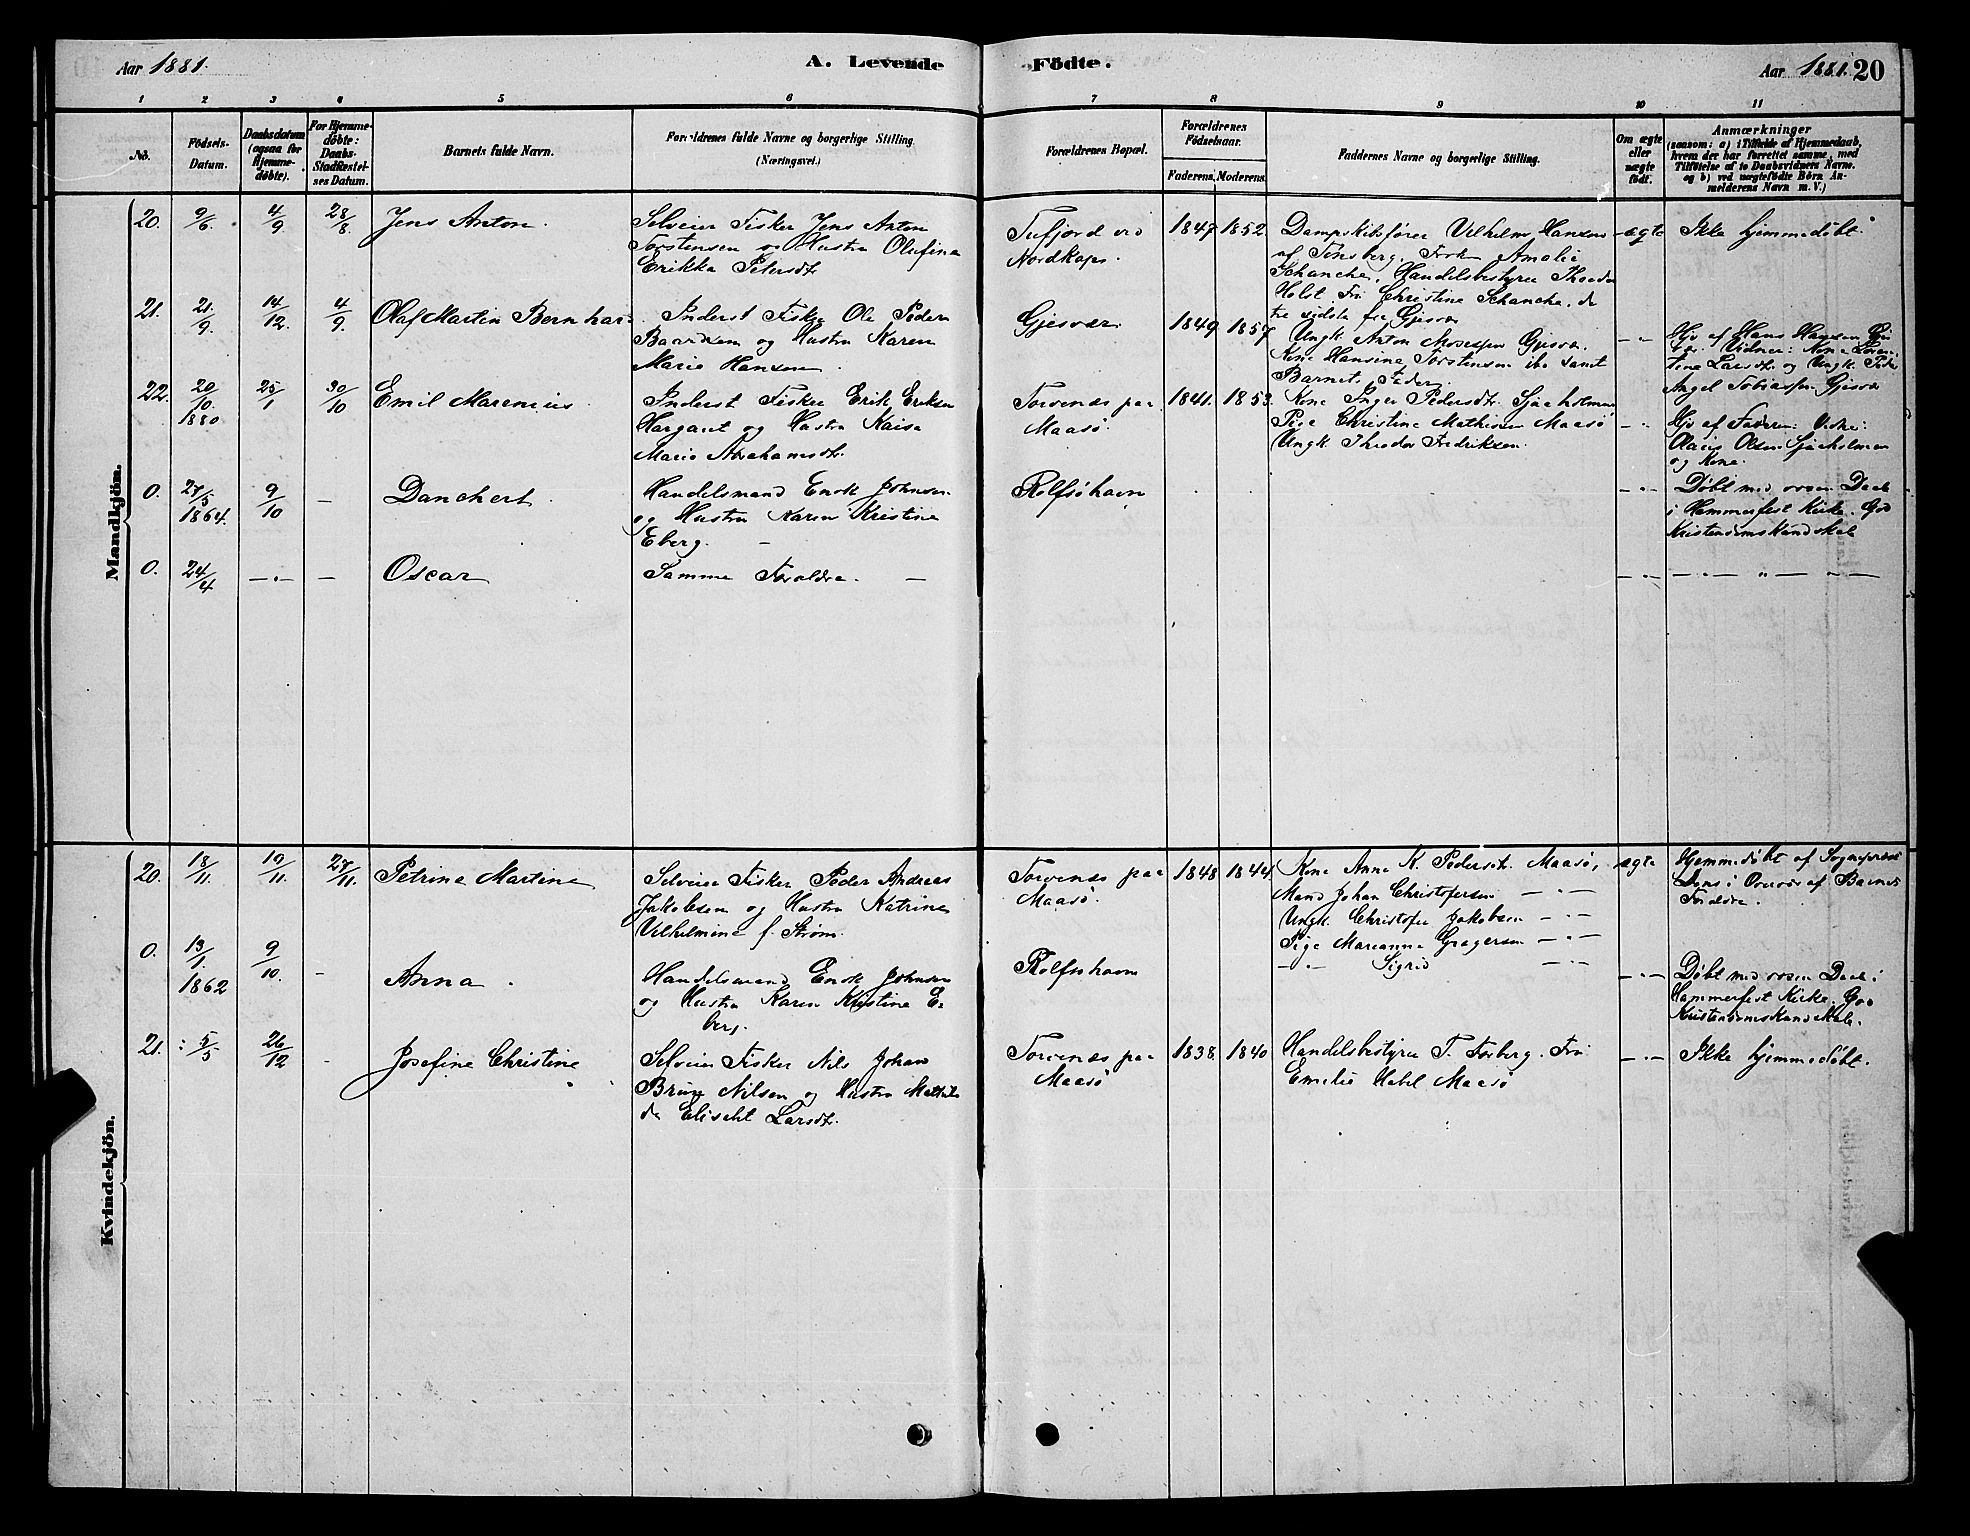 Aar 1881.
A. Levende Födte.
Aar 1881. 20
1 2 3 4 5 6 7 8 9 10 11
No.
Födsels-Datum.
Daabsdatum (ogsaa for Hjemmedöbte).
For Hjemmedöbte: Daabs-Stadfæstelses Datum.
Barnets fulde Navn.
Forældrenes fulde Navne og borgerlige Stilling. (Næringsvei.)
Forældrenes Bopæl.
Forældrenes Födselsaar.
Faderens. Moderens.
Faddernes Navne og borgerlige Stilling.
Om ægte eller uægte födt.
Anmærkninger
(saasom: a) i Tilfælde af Hjemmedaab, hvem der har forrettet samme, med Tilföielse af to Daabsvidners Navne. og b) ved uægtefödte Börn Anmelderens Navn m. V.)
Mandkjön.
20. 9/6. 4/9 28/8 Jens Anton.
Selveier Fisker Jens Anton
Torstensen og Hustru Olufina
Erikka Petersdt.
Tufjord ved
Nordkap.
1847 1852.
Dampskibsfører Vilhelm Hansen
af Tønsberg. Frk. Amalie
Schanche. Handelsbestyrer Theodor
Holst. Fru Christine Schanche, de
tre sidste fra Gjesvær
ægte Ikke hjemmedøbt.
21. 21/9. 14/12. 4/9 Olaf Martin Bernhard
Inderst Fisker Ole Peder
Baardsen og Hustru Karen
Marie Hansen.
Gjesvær
1849 1857
Ungk. Anton Mosesen Gjesvær.
Kone Hansina Torstensen ibd samt
Barnets Fader.
— " —
Hjd af Hans Hansen
Vidner: Kone
Larsdt. og Ungk. Peder
Angel Tobiassen Gjesvær
22. 20/10. 1880 25/1 30/10 Emil Marenius
Inderst Fisker Erik Eriksen
Hargaut og Hustru Kaisa
Maria Abrahamsdt.
Torvenæs paa
Maasø.
1841. 1853.
Kone Inger Pedersdt. Sjaaholmen
Pige Christine Mathisen Maasø
Ungk. Theodor Fredriksen.
— " —
Hjd af Faderen. Vidne:
Olaus Olsen Sjaaholmen
og Kone.
0. 27/5 1864. 9/10 — Danchert.
Handelsmand Enok Johnsen
og Hustru Karen Kristine
Eberg. —
Rolfsøhavn
— " —
Døbt med voxen Daab
i Hammerfest Kirke. God
Kristendomskundskab
0. 24/4 — " — — Oscar
Samme Forældre. —
— " — — " — " — " —
Kvindekjön.
20. 18/11. 19/11. 27/11. Petrine Martine
Selveier Fisker Peder Andreas
Jakobsen og Hustru Katrine
Vilhelmine f. Strøm.
Torvenæs paa
Maasø.
1848 1844.
Kone Anne K. Pedersdt. Maasø,
Mand Johan Christofersen — " —
Ungk. Christofer Jakobsen — " —
Pige Marianne Gregersen — " —
— " — Sigrid — " —
ægte
Hjemmedøbt af Sognepræst
i Overvær af Barnets
Forældre.
0. 13/1. 1862 9/10. — Anna.
Handelsmand Enok Johnsen
og Hustru Karen Kristine E-
berg.
Rolfsøhavn
— " —
Døbt med voxen Daab i
Hammerfest Kirke. God
Kristendomskundskab.
21. 5/5 26/12 — Josefine Christine
Selveier Fisker Nils Johan
Brun Nilsen og Hustru Mathil-
de Elisabet Larsdt.
Torvenæs paa
Maasø
1838. 1840
Handelsbestyrer T. Forberg. Fru
Emelie Habel Maasø
— " — Ikke hjemmedøbt.